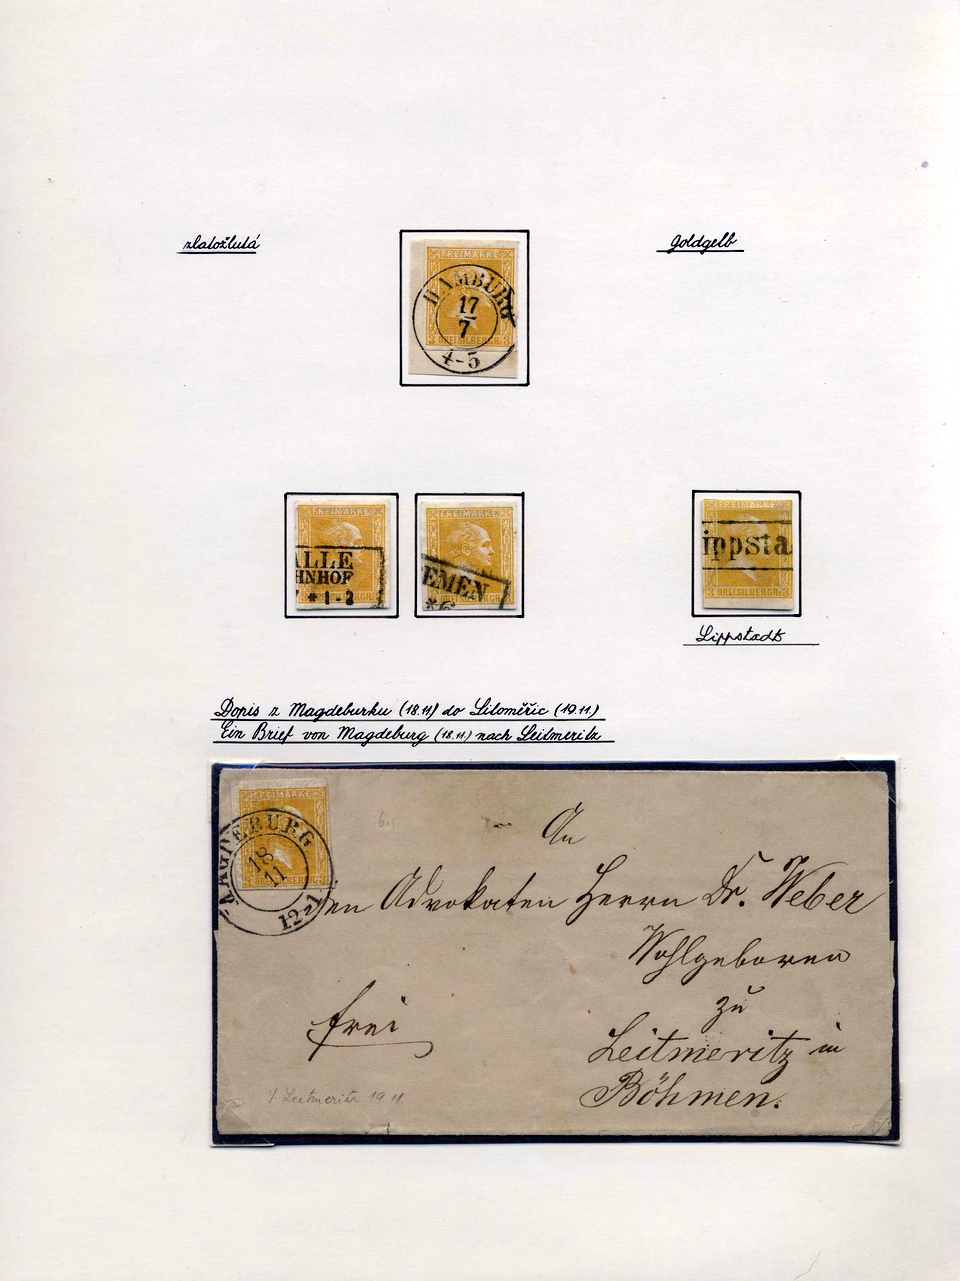 zlatožlutá
goldgelb
FREIMARKE
HAMBURG
17
7
4-5
3 DREI SILBERGR. 3
FREIMARKE
ALLE
HNHOF
* 1-2
FREIMARKE
EMEN
*6
DREI SILBERGR. 3
FREIMARKE
ippsta
3 DREI SILBERGR. 3
Lippstadt
Dopis z Magdeburku (18.11) do Litoměřic (19.11.)
Ein Brief von Magdeburg (18.11) nach Leitmeritz
FREIMARKE
MAGDEBURG
18
11
12-1
An
den Advokaten Herrn Dr. Weber
Wohlgeboren
zu
frei
Leitmeritz in
Böhmen.
Leitmeritz 19 11.